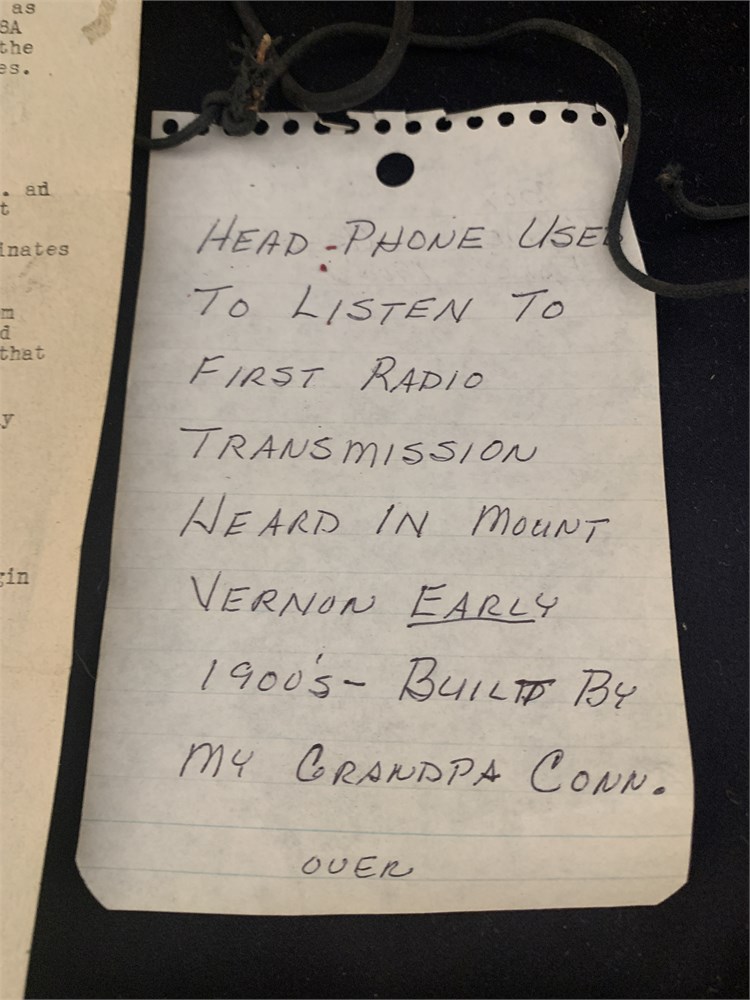 as
8A
the
es.
. ad
t
inates
m
d
that
y
gin
HEAD-PHONE USED
TO LISTEN TO
FIRST RADIO
TRANSMISSION
HEARD IN MOUNT
VERNON EARLY
1900's- BUILT BY
MY GRANDPA CONN.
OVER